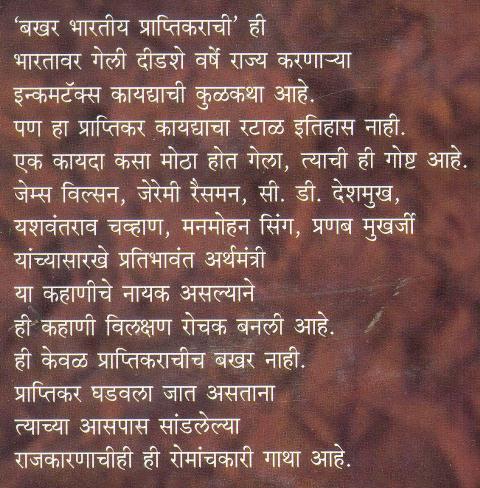 ‘बखर भारतीय प्राप्तिकराची’ ही
भारतावर गेली दीडशे वर्षे राज्य करणाऱ्या
इन्कमटॅक्स कायद्याची कुळकथा आहे.
पण हा प्राप्तिकर कायद्याचा रटाळ इतिहास नाही.
एक कायदा कसा मोठा होत गेला, त्याची ही गोष्ट आहे.
जेम्स विल्सन, जेरेमी रैसमन, सी. डी. देशमुख,
यशवंतराव चव्हाण, मनमोहन सिंग, प्रणब मुखर्जी
यांच्यासारखे प्रतिभावंत अर्थमंत्री
या कहाणीचे नायक असल्याने
ही कहाणी विलक्षण रोचक बनली आहे.
ही केवळ प्राप्तिकराचीच बखर नाही.
प्राप्तिकर घडवला जात असताना
त्याच्या आसपास सांडलेल्या
राजकारणाचीही ही रोमांचकारी गाथा आहे.